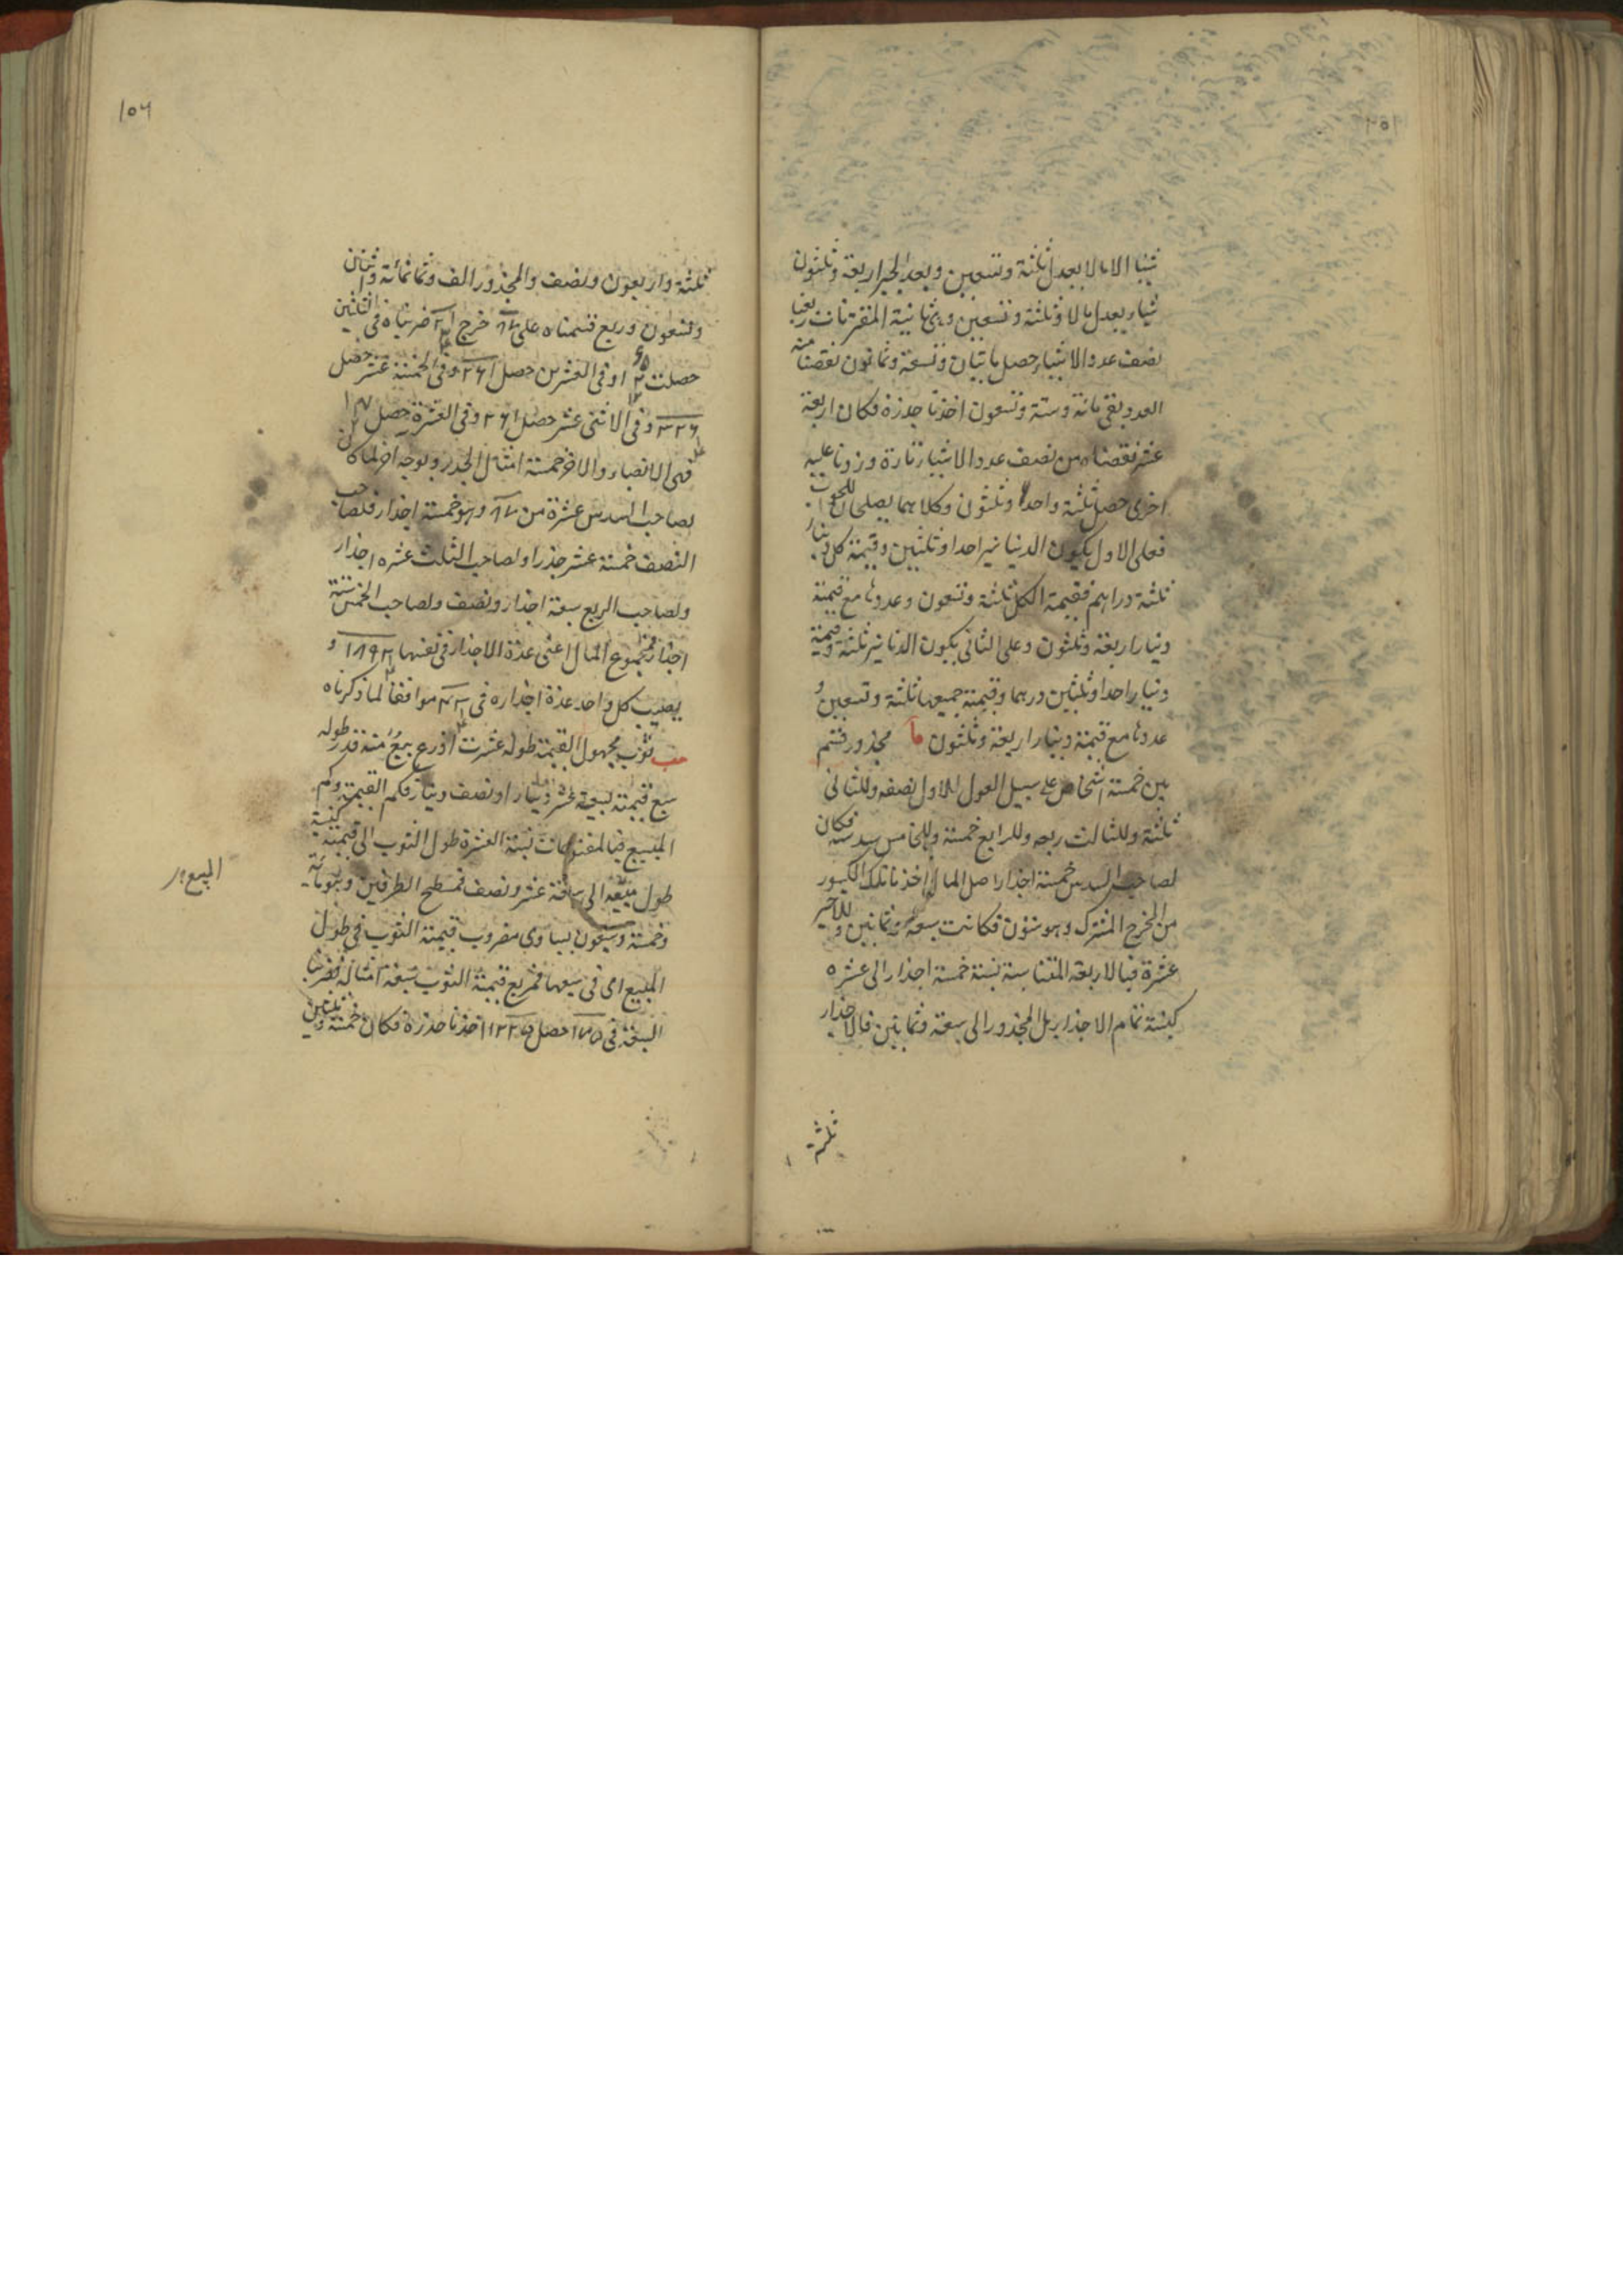 شيئا الا مالا يعدل ثلثة وتسعين وبعد الجبر اربعة وثلثون
شيئا يعدل مالا وثلثة وتسعين وثمانية المقترنات ربعنا
نصف عدد الاشياء حصل مأتيان وتسعة وثمانون نقصنا منه
العدد بقى مائة وستة وتسعون اخذنا جذره فكان اربعة
عشر نقصناه من نصف عدد الاشياء تارة وزدنا عليه
اخرى حصل ثلثة واحد وثلثون وكلاهما يصلحان للجواب
فعلى الاول يكون الدنانير احدا وثلثين وقيمة كل دينار
ثلثة دراهم فقيمة الكل ثلثة وتسعون وعددها مع قيمة
دينار اربعة وثلثون وعلى الثانى يكون الدنانير ثلثة وقيمة
دينار احدا وثلثين درهما وقيمة جميعها ثلثة وتسعين و
عددها مع قيمة دينار اربعة وثلثون ما مجذور قسم
بين خمسة اشخاص على سبيل العول للاول نصفه وللثانى
ثلثة وللثالث ربعه وللرابع خمسة وللخامس سدسه فكان
لصاحب السدس خمسة اجذار اصل المال اخذنا تلك الكسور
من المخرج المشترك وهو ستون فكانت سبعة وثمانين وللاخير
عشرة فبالاربعة المتناسبة نسبة خمسة اجذار الى عشرة
كنسبة تمام الاجذار بل المجذور الى سبعة وثمانين فالاجذار
ثلثة
١٥٦
ثلثة واربعون ونصف والمجذور الف وثمانمائة واثنان
وتسعون وربع قسمناه على ٨٧ خرج ٢١ ضربناه فى الثلثين
حصلت وفى العشرين حصل وفى الخمسة عشر حصل
٣٢٦ وفى الاثنى عشر حصل ٢٦١ وفى العشرة حصل
فهى الانصباء والاخر خمسة امثال الجذر وبوجه اخر لما كان
لصاحب السدس عشرة من ٨٧ وهو خمسة اجذار فلصاحب
النصف خمسة عشر جذرا ولصاحب الثلث عشرة اجذار
ولصاحب الربع سبعة اجذار ونصف ولصاحب الخمس ستة
اجذار فمجموع المال اعنى عدة الاجذار فى نفسها ١٨٩٢ و
يصيب كل واحد عدة اجذاره فى ٤٣ موافقا لما ذكرناه
مب ثوب مجهول القيمة طوله عشرت اذرع بيع منه قدر طوله
سبع قيمته بسبعة عشر دينارا ونصف دينار فكم القيمة وكم
المبيع فبا نسبة العشرة طول الثوب الى قيمته كنسبة
طول مبيعه الى سبعة عشر ونصف فمسطح الطرفين وهو مائة
وخمسة وسبعون يساوى مضروب قيمة الثوب فى طول
المبيع اى فى سبعها فمربع قيمة الثوب سبعة امثاله فضربنا
السبعة فى ١٧٥ حصل ١٢٢٥ اخذنا جذره فكان خمسة وثلثين
المبيع